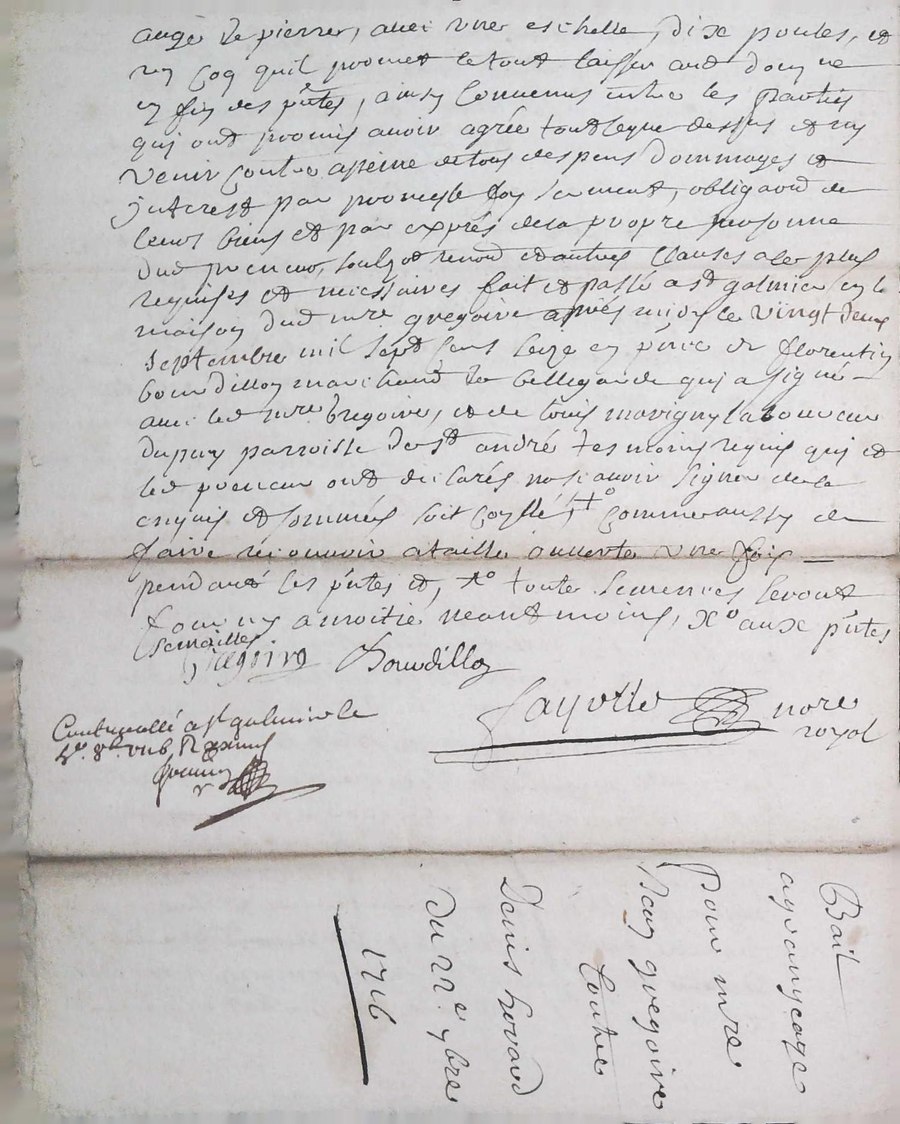 auge de pierre, avec une eschelle, dix poules, et
un coq quil promet le tout laisser aud domyne
en fin des pntes, ainsy convenus entre les parties
qui ont promis avoir agrée tout leque dessus et ny
venir contre a peine de tous despens dommages et
interest par promesse foy serment, obligaon de
leurs biens et par exprés de sa propre personne
dud preneur, soubz et renon et autres clauses a ce plus
requises et necessaires fait et passé a st galmier en la
maison dud mre gregoire aprés midy le vingt deux
septembre mil sept cens seize en pnce de florentin
bourdillon marchand de bellegarde qui a signé
avec led mre gregoire, et de louis marigny laboureur
du puy parroisse de st andré tesmoins requis qui et
led preneur ont declarés ne scavoir signer de ce
enquis et sommés soit coyllé, +o comme aussy de
faire recouvrir a taille ouverte une fois
pendant les pntes et, xo toute semences seront
fournys a moitié neantmoins, xo aux pntes
semailles
gregoire Bourdillon
Fayolle nore
royal
Controollé a st galmier le
Bail
a grangeage
Pour mre
gregoire
Contre
Denis
Du 22e 7bre
1716